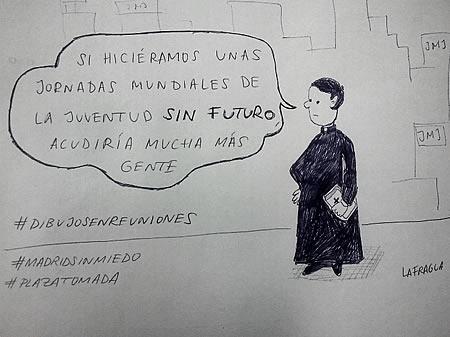 SI HICIÉRAMOS UNAS
JORNADAS MUNDIALES DE
LA JUVENTUD SIN FUTURO
ACUDIRÍA MUCHA MÁS
GENTE
JMJ
JMJ
#DIBUJOSENREUNIONES
#MADRIDSINMIEDO
#PLAZATOMADA
LAFRAGUA